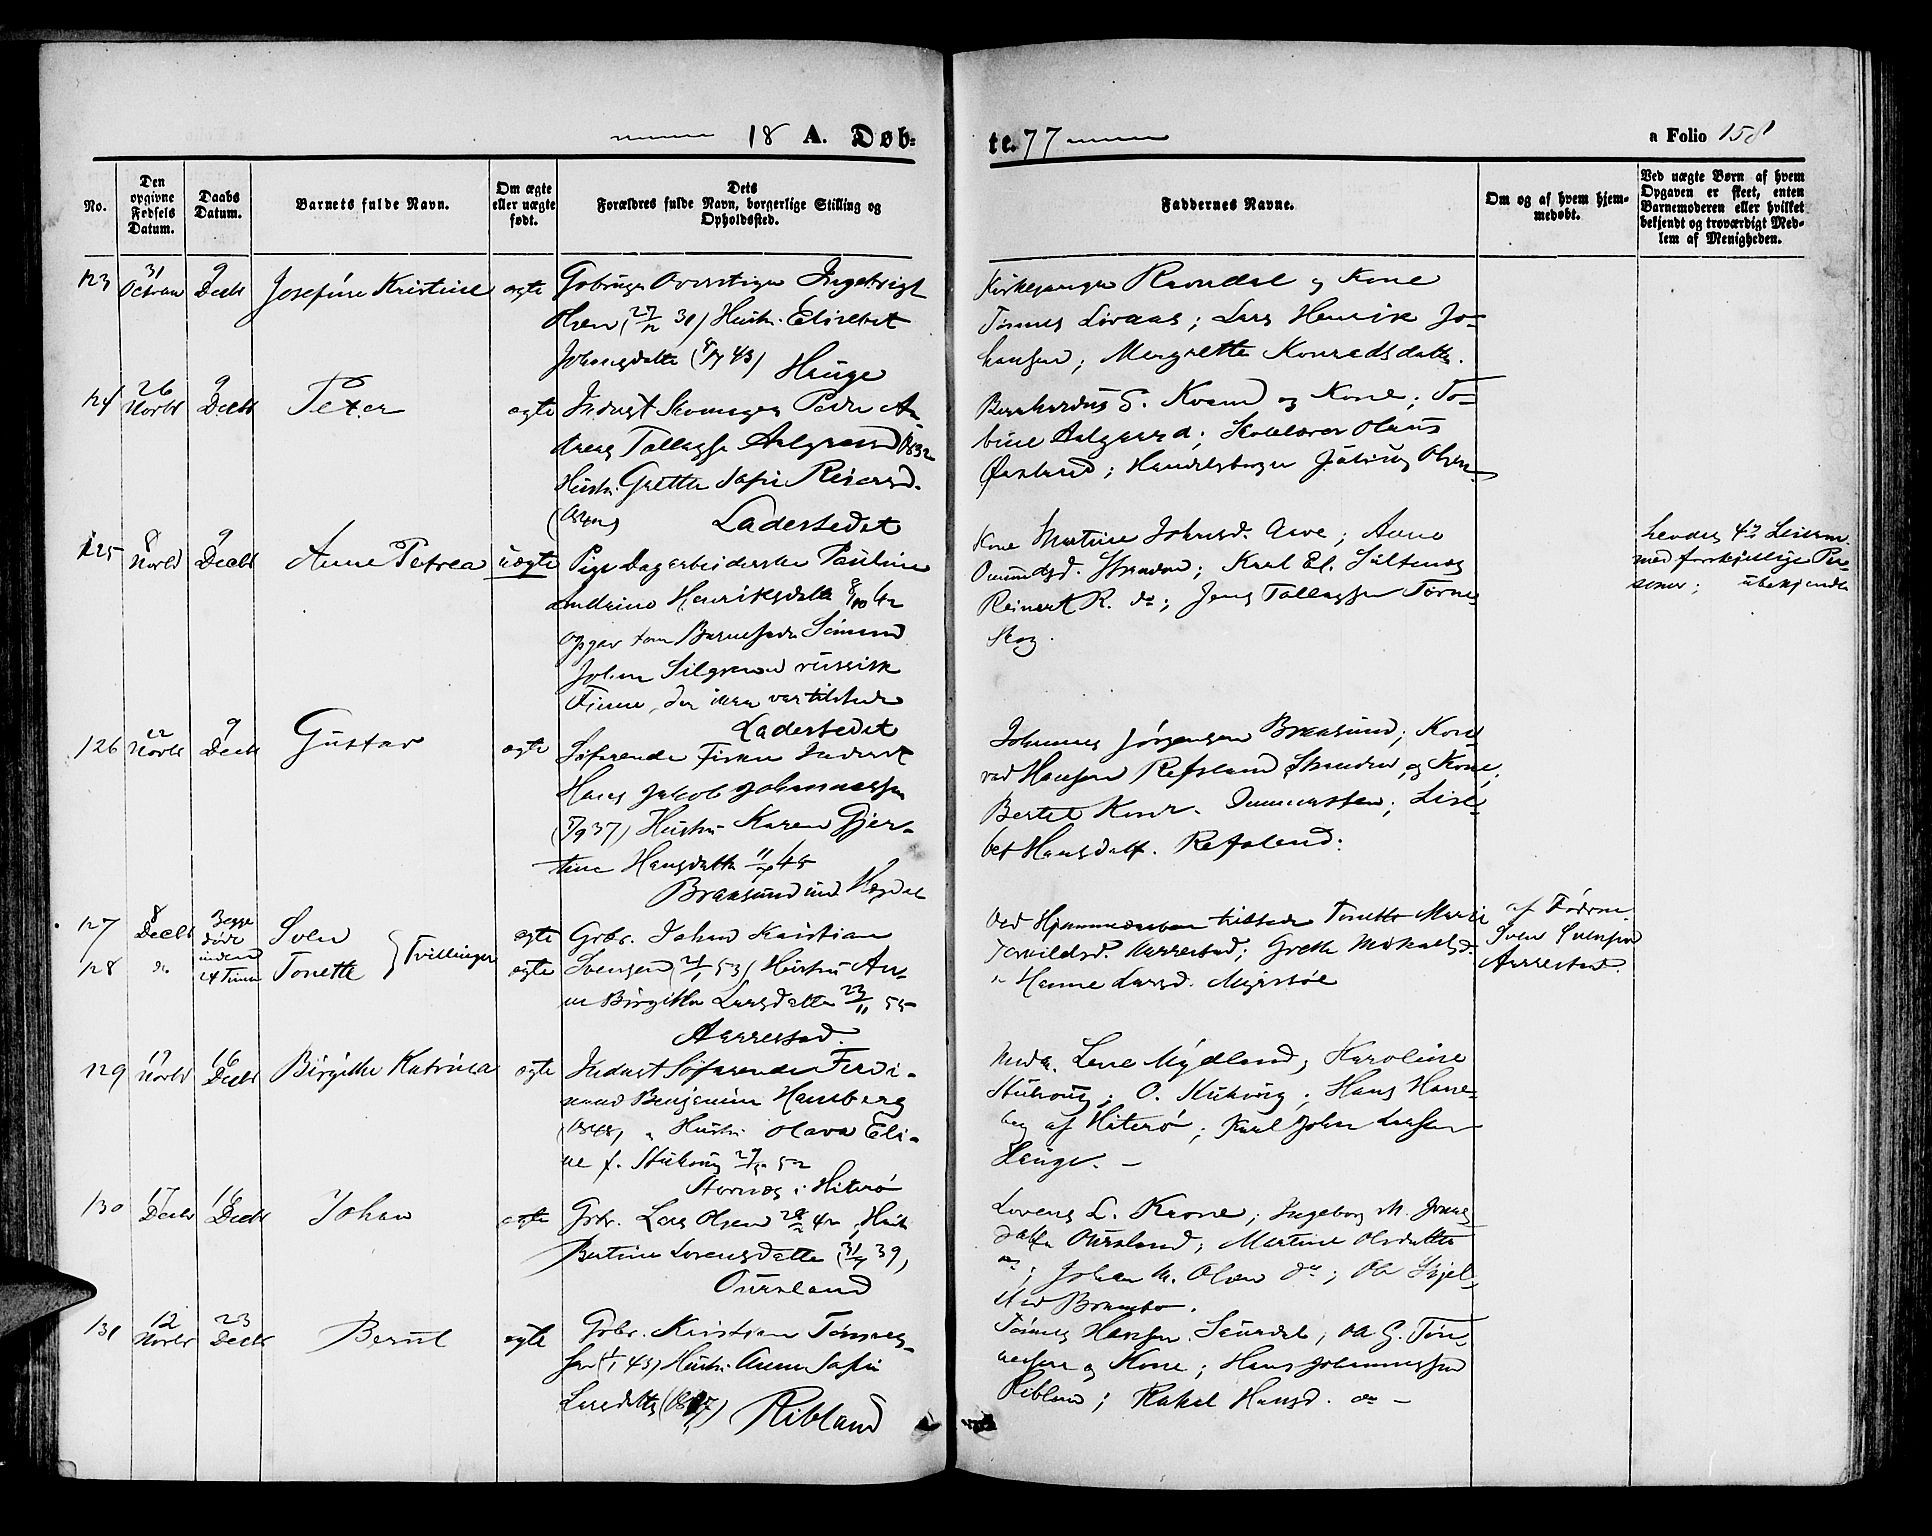 18 A. Døb-
te. 77
a Folio 158
No.
Den opgivne Fødsels Datum.
Daabs Datum.
Barnets fulde Navn.
Om ægte eller uægte født.
Dets Forældres fulde Navn, borgerlige Stilling og Opholdssted.
Faddernes Navne.
Om og af hvem hjemmedøbt.
Ved uægte Børn af hvem Opgaven er skeet, enten Barnemoderen eller hvilket bekjendt og troværdigt Medlem af Menigheden.
123
31
9 Decbr
Josefine Kristine
ægte
Ingebrigt
Olsen (27/12 31) Hustr. Elisebet
Johansdatter
Hauge
Kirkesanger Ravndal og Kone
Tønnes Lovaas; Lars Henrik Jo-
hansen; Margrette Konradsdatt.
124
26 Novbr
9 Decbr
Peter
ægte
Indust Skomager Peder An-
dreas Tallagsen Aalgaard 1832
Hustr. Grette Sofie Reiersd.
Ladestedet
Bernhardus S. Kvam og Kone; To-
bine Aalgaard; Skolelærer Olaus
Øksland; Handelsborger Julius Olsen
125
8 Novbr
9 Decbr
Anne Petrea
uægte
Pige Dagarbeiderske Pauline
Andrine Henriksdatter 8/10 42
opgav som Barnefader Simond
Johan Silgren russisk
Finne, der ikke var tilstede
Ladestedet
Kone Martine Johnsd. Aase; Anne
Omundsd. Stranden; Karl El. Sultenes
Reinert R. do; Jens Tallagsen Tørne-
skog.
hendes 4de Leierm.
med forskjellige Per-
soner; ubekjendt
126
22 Novbr
9 Decbr
Gustav
ægte
Søfarende Fisker Inderst
Hans Jakob Johannessen
(5/9 37) Hustr. Karen Gjer-
tine Hansdatter
Brekesund
Johannes Jørgensen Brekesund; Kon-
rad Hansen Refsland Stranden og Kone;
Bertel Konr.
bet Hansdatt. Refsland.
127
8 Decbr
Begge
døde
inden
24 Timer
Sven
Tvillinger
ægte
Grbr. Johan Kristian
128
do
Tonette
ægte
Svensen (21/1 53) Hustru An-
ne Birgitte Larsdatter 23/11 55
Aarrestad.
Ved Hjemmedaaben tilstede Tonette Marie
Torvildsd. Aarrestad; Grette Mikaelsd.
" Hanne Larsd.
af Fødrm.
Sven Svensen
Aarrestad.
129
17 Novbr
16 Decbr
Birgitte Katrina
ægte
Indust Søfarende Ferdi-
nand Benjamin Hansberg
(1848) Hustr. Olava Eli-
ne f. Stuhoug
i Hiterø
Mad. Lene Mydland; Karoline
Stuhoug; O. Stuhoug; Hans Hans-
berg af Hiterø; Karl Johan Larsen
Hauge.
130
17 Decbr
16 Decbr
Johan
ægte
Grbr. Lars Olsen 42; Hustr.
Bertine Lorensdatter (31/7 39)
Ouesland
Lorens L. Krone; Ingeborg M. Jonas-
datter Ouesland; Martine Olsdatter
do; Johan M. Olsen do; Ole Skjel-
sted Brambo.
131
12 Novbr
23 Decbr
Bernt
ægte
Grbr. Kristian Tønnes-
sen (1/1 43) Hustr. Anne Sofie
Larsdatter
Ribland
Tønnes Hansen; Ole G. Tøn-
nessen og Kone; Hans Johannessen
Ribland; Rakel Hansd. do